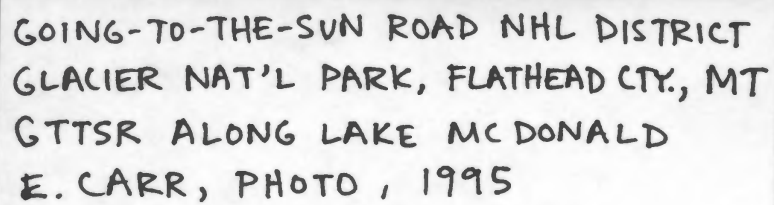 GOING-TO-THE-SUN ROAD NHL DISTRICT
GLACIER NAT'L PARK, FLATHEAD CTY., MT
GTTSR ALONG LAKE MCDONALD
E. CARR, PHOTO, 1995